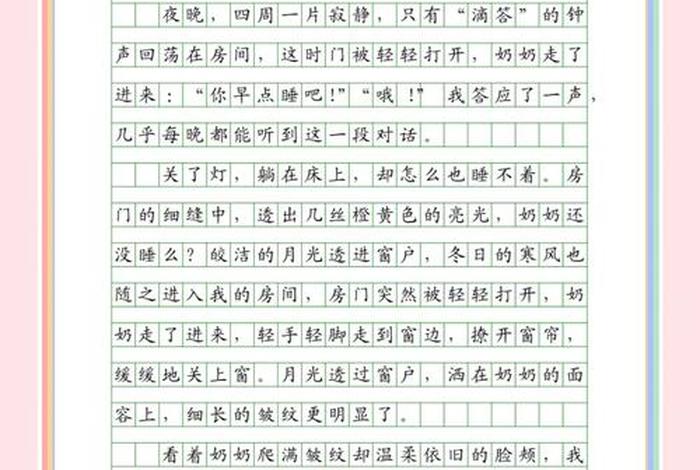 夜晚，四周一片寂静，只有“滴答”的钟
声回荡在房间，这时门被轻轻打开，奶奶走了
进来：“你早点睡吧！”“哦！”我答应了一声，
几乎每晚都能听到这一段对话。
关了灯，躺在床上，却怎么也睡不着。房
门的细缝中，透出几丝橙黄色的亮光，奶奶还
没睡么？皎洁的月光透进窗户，冬日的寒风也
随之进入我的房间，房门突然被轻轻打开，奶
奶走了进来，轻手轻脚走到窗边，撩开窗帘，
缓缓地关上窗。月光透过窗户，洒在奶奶的面
容上，细长的皱纹更明显了。
看着奶奶爬满皱纹却温柔依旧的脸颊，我